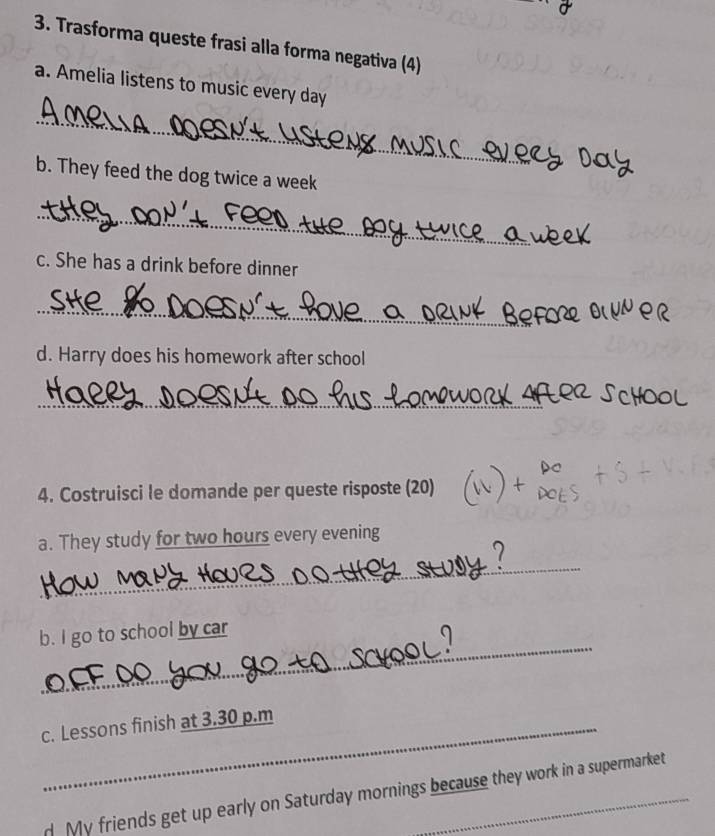 3. Trasforma queste frasi alla forma negativa (4)
a. Amelia listens to music every day
AMELIA DOESN't LISTENS MUSIC every Day
b. They feed the dog twice a week
tHey DON't FeeD tHe Dog twice a week
c. She has a drink before dinner
SHe DOESN't have a DRINK BeFORe DINNeR
d. Harry does his homework after school
HaRRy DOESN't DO his homowoRK AFteR SCHOOL
4. Costruisci le domande per queste risposte (20) (W) + DO DOES + S + V.
a. They study for two hours every evening
How many HOURS DO tHey stuDy?
b. I go to school by car
DO you go to SCHOOL?
c. Lessons finish at 3.30 p.m
d. My friends get up early on Saturday mornings because they work in a supermarket